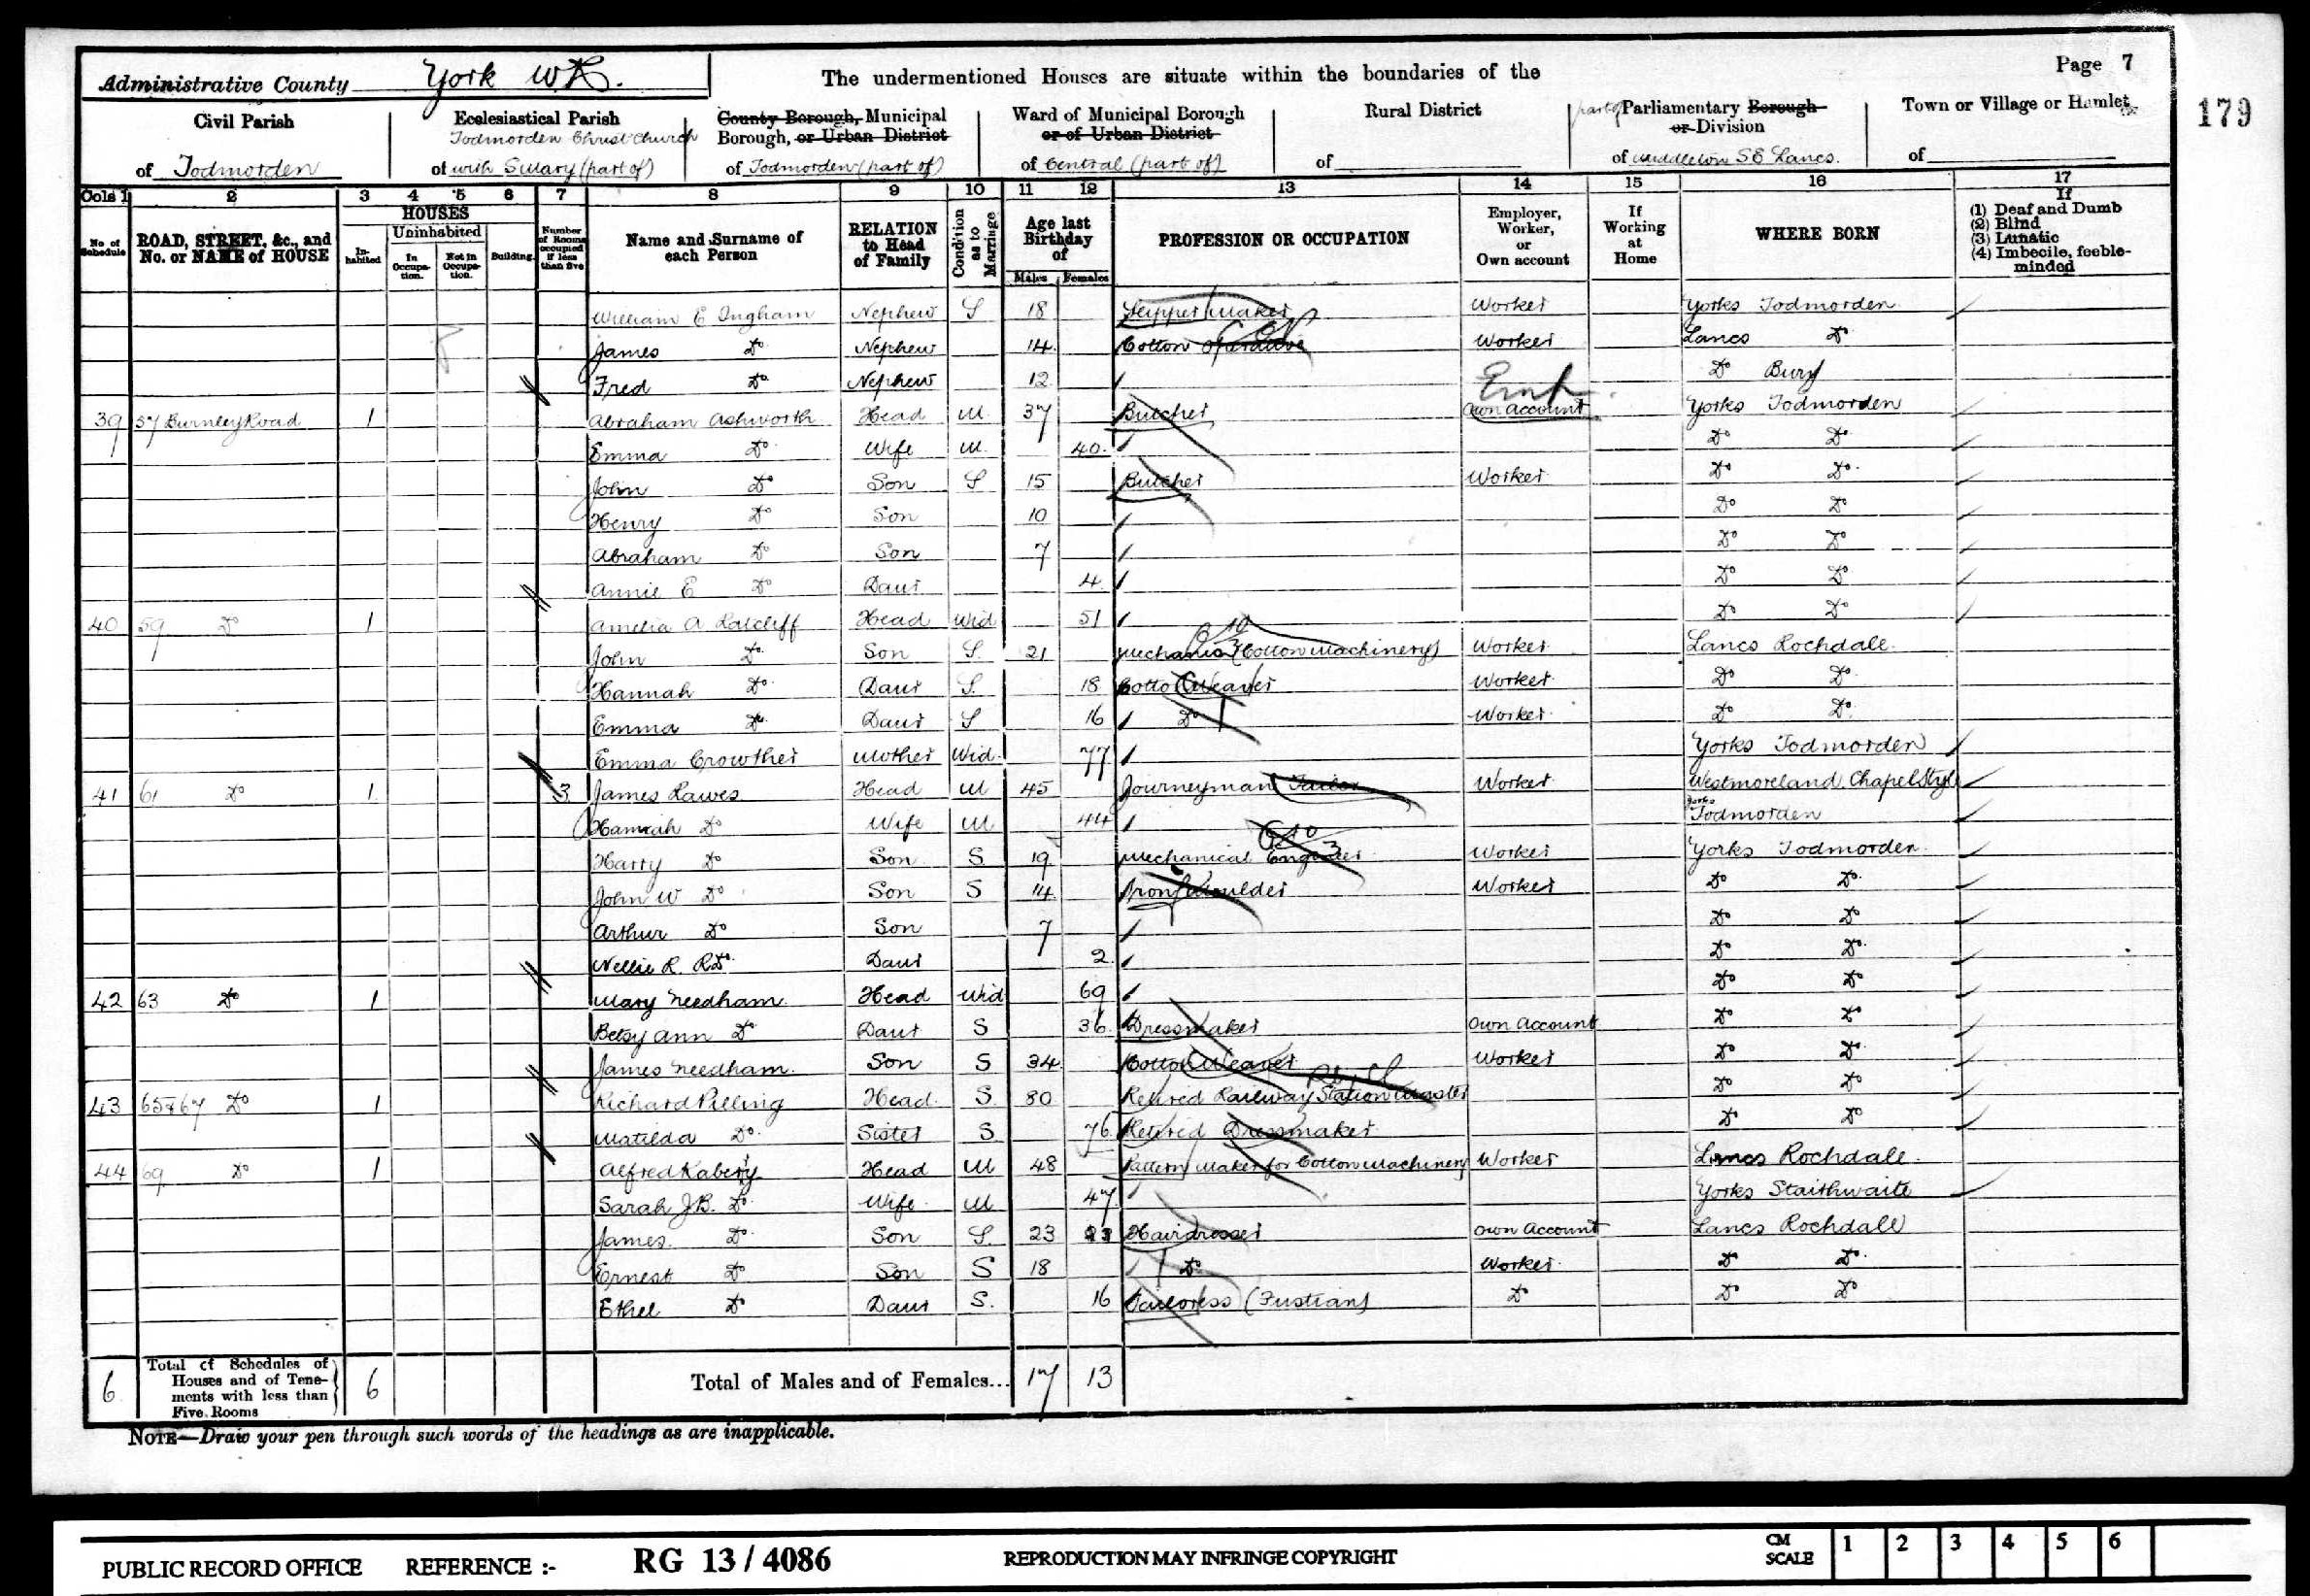 Page 7
179
Administrative County York W.R.
The undermentioned Houses are situate within the boundaries of the
Civil Parish
of Todmorden
Ecclesiastical Parish
Todmorden Christ Church
of with S Mary (part of)
County Borough, Municipal
Borough, or Urban District
of Todmorden (part of)
Ward of Municipal Borough
or of Urban District
of Central (part of)
Rural District
of
part of Parliamentary Borough
or Division
of Middleton SE Lancs.
Town or Village or Hamlet
of
Cols 1 2 3 4 5 6 7 8 9 10 11 12 13 14 15 16 17
No. of Schedule
ROAD, STREET, &c., and No. or NAME of HOUSE
HOUSES
Inhabited
Uninhabited
In Occupation.
Not in Occupation.
Building.
Number of Rooms occupied if less than five
Name and Surname of each Person
RELATION to Head of Family
Condition as to Marriage
Age last Birthday of
Males Females
PROFESSION OR OCCUPATION
Employer, Worker, or Own account
If Working at Home
WHERE BORN
If
(1) Deaf and Dumb
(2) Blind
(3) Lunatic
(4) Imbecile, feeble-minded
William E Ingham Nephew S 18 Slipper Maker Worker Yorks Todmorden
James Do Nephew 14 Cotton Operative Worker Lancs Do
Fred Do Nephew 12 Do Bury
39 57 Burnley Road 1 Abraham Ashworth Head M 37 Butcher Own account Emp Yorks Todmorden
Emma Do Wife M 40 Do Do
John Do Son S 15 Butcher Worker Do Do
Henry Do Son 10 Do Do
Abraham Do Son 7 Do Do
Annie E Do Daur 4 Do Do
40 59 Do 1 Amelia A Ratcliff Head Wid 51 Do Do
John Do Son S 21 Mechanic (Cotton Machinery) Worker Lancs Rochdale
Hannah Do Daur S 18 Cotton Weaver Worker Do Do
Emma Do Daur S 16 Do Worker Do Do
Emma Crowther Mother Wid 77 Yorks Todmorden
41 61 Do 1 3 James Lawes Head M 45 Journeyman Tailor Worker Westmoreland Chapel Style
Hannah Do Wife M 44 Yorks Todmorden
Harry Do Son S 19 Mechanical Engineer Worker Yorks Todmorden
John W Do Son S 14 Iron Moulder Worker Do Do
Arthur Do Son 7 Do Do
Nellie R. R Do Daur 2 Do Do
42 63 Do 1 Mary Needham Head Wid 69 Do Do
Betsy Ann Do Daur S 36 Dressmaker Own Account Do Do
James Needham Son S 34 Cotton Weaver Worker Do Do
43 65 & 67 Do 1 Richard Pilling Head S 80 Retired Railway Station Master Do Do
Matilda Do Sister S 76 Retired Dressmaker Do Do
44 69 Do 1 Alfred Kabery Head M 48 Pattern Maker for Cotton Machinery Worker Lancs Rochdale
Sarah J.B. Do Wife M 47 Yorks Staithwaite
James Do Son S 23 23 Hairdresser Own Account Lancs Rochdale
Ernest Do Son S 18 Do Worker Do Do
Ethel Do Daur S. 16 Tailoress (Fustian) Do Do Do
6 Total of Schedules of Houses and of Tenements with less than Five Rooms 6 Total of Males and of Females... 17 13
NOTE—Draw your pen through such words of the headings as are inapplicable.
PUBLIC RECORD OFFICE REFERENCE :- RG 13/4086 REPRODUCTION MAY INFRINGE COPYRIGHT CM SCALE 1 2 3 4 5 6